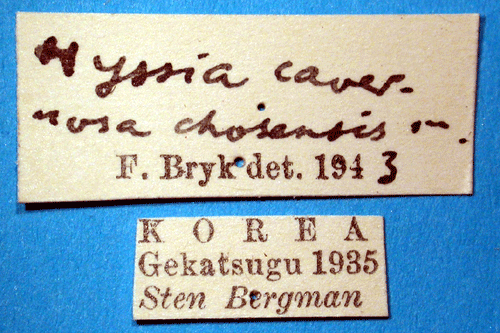 Hyssia caver-
nosa chosensis m.
F. Bryk det. 1943
KOREA
Gekatsugu 1935
Sten Bergman